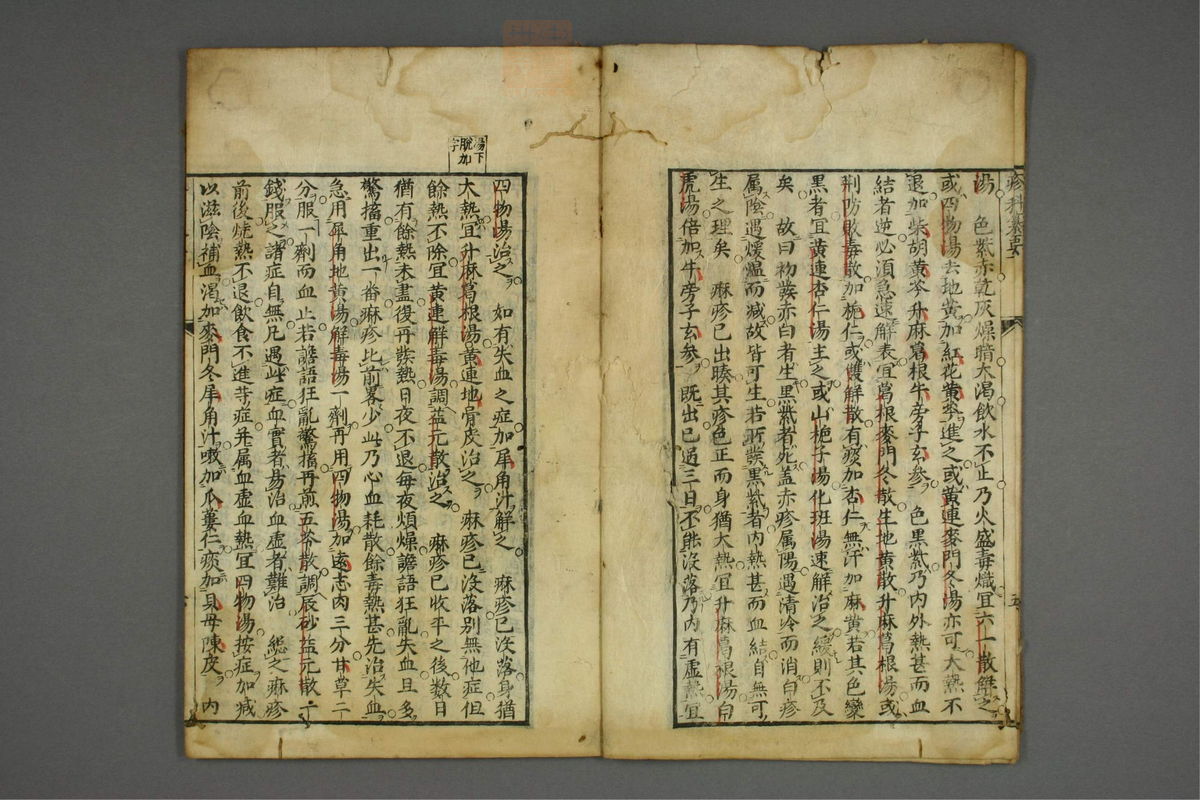 疹科纂要
湯 色紫赤乾灰燥暗大渴飲水不止乃火盛毒熾宜六一散解之
或四物湯去地黃加紅花黃芩進之或黃連麥門冬湯亦可大熱不
退加柴胡黃芩升麻葛根牛旁子玄參 色黑紫乃內外熱甚而血
結者逆必須急速解表宜葛根麥門冬散生地黃散升麻葛根湯或
荆防敗毒散加梔仁或雙解散有痰加杏仁無汗加麻黃若其色變
黑者宜黃連杏仁湯主之或山梔子湯化班湯速解治之緩則不及
矣 故曰初發赤白者生黑紫者死蓋赤疹属陽遇清冷而消白疹
属陰遇煖溫而減故皆可生若所發黑紫者內熱甚而血結自無可
生之理矣 麻疹已出勝其疹色正而身猶大熱宜升麻葛根湯白
虎湯倍加牛旁子玄參 既出已過三日不能沒落乃內有虛熱宜
五
湯下
脫加
字
四物湯治之 如有失血之症加犀角汁解之 麻疹已沒落身猶
大熱宜升麻葛根湯黃連地骨皮治之 麻疹已沒落別無他症但
餘熱不除宜黃連解毒湯調益元散治之 麻疹已收平之後數日
猶有餘熱未盡復再發熱日夜不退每夜煩燥譫語狂亂失血且多
驚搐重出一畨麻疹比前畧少此乃心血耗散餘毒熱甚先治失血
急用犀角地黃湯解毒湯一劑再用四物湯加遠志肉三分甘草二
分服一劑而血止若譫語狂亂驚搐再煎五苓散調辰砂益元散一
錢服之諸症自無凡遇此症血實者易治血虛者難治 緫之麻疹
前後燒熱不退飲食不進等症并属血虛血熱宜四物湯按症加减
以滋陰補血渴加麥門冬犀角汁嗽加瓜蔞仁痰加貝母陳皮 內